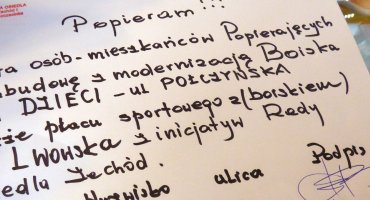 Popieram!!!
osób-mieszkańców Popierających
budowę i modernizację Boiska
DZIECI - ul POŁCZYŃSKA
placu sportowego z(boiskiem)
LWOWSKA z inicjatyw Rady
Zachód.
Nazwisko ulica Podpis